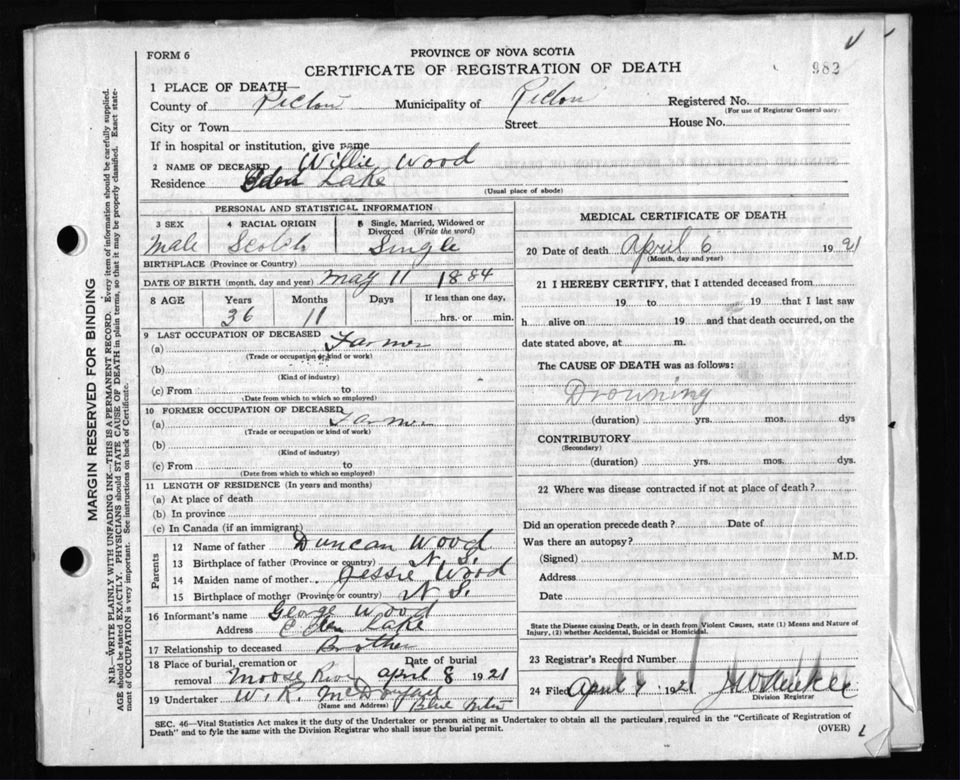 FORM 6
PROVINCE OF NOVA SCOTIA
CERTIFICATE OF REGISTRATION OF DEATH
982
1 PLACE OF DEATH—
County of Pictou Municipality of Pictou Registered No.
(For use of Registrar General only)
City or Town Street House No.
If in hospital or institution, give name
2 NAME OF DECEASED Willie Wood
Residence Eden Lake
(Usual place of abode)
PERSONAL AND STATISTICAL INFORMATION
3 SEX 4 RACIAL ORIGIN 5 Single, Married, Widowed or Divorced (Write the word)
Male Scotch Single
BIRTHPLACE (Province or Country)
DATE OF BIRTH (month, day and year) May 11 1884
8 AGE Years Months Days If less than one day,
36 11 hrs. or min.
9 LAST OCCUPATION OF DECEASED
(a) Farmer
(Trade or occupation or kind of work)
(b)
(Kind of industry)
(c) From to
(Date from which to which so employed)
10 FORMER OCCUPATION OF DECEASED
(a) Farmer
(Trade or occupation or kind of work)
(b)
(Kind of industry)
(c) From to
(Date from which to which so employed)
11 LENGTH OF RESIDENCE (In years and months)
(a) At place of death
(b) In province
(c) In Canada (if an immigrant)
Parents
12 Name of father Duncan Wood
13 Birthplace of father (Province or country) N. S.
14 Maiden name of mother Jessie Wood
15 Birthplace of mother (Province or country) N. S.
16 Informant's name George Wood
Address Eden Lake
17 Relationship to deceased Brother
18 Place of burial, cremation or removal Moose River Date of burial April 8 1921
19 Undertaker W. R. McDonald
(Name and Address) Blue
MEDICAL CERTIFICATE OF DEATH
20 Date of death April 6 1921
(Month, day and year)
21 I HEREBY CERTIFY, that I attended deceased from
19 to 19 that I last saw
h alive on 19 and that death occurred, on the
date stated above, at m.
The CAUSE OF DEATH was as follows:
Drowning
(duration) yrs. mos. dys
CONTRIBUTORY
(Secondary)
(duration) yrs. mos. dys.
22 Where was disease contracted if not at place of death?
Did an operation precede death? Date of
Was there an autopsy?
(Signed) M.D.
Address
Date
State the Disease causing Death, or in death from Violent Causes, state (1) Means and Nature of
Injury, (2) whether Accidental, Suicidal or Homicidal.
23 Registrar's Record Number
24 Filed April 1921
Division Registrar
SEC. 46—Vital Statistics Act makes it the duty of the Undertaker or person acting as Undertaker to obtain all the particulars required in the "Certificate of Registration of
Death" and to fyle the same with the Division Registrar who shall issue the burial permit.
(OVER)
MARGIN RESERVED FOR BINDING
N.B.—WRITE PLAINLY WITH UNFADING INK—THIS IS A PERMANENT RECORD. Every item of information should be carefully supplied.
AGE should be stated EXACTLY. PHYSICIANS should STATE CAUSE OF DEATH in plain terms, so that it may be properly classified. Exact state-
ment of OCCUPATION is very important. See instructions on back of Certificate.